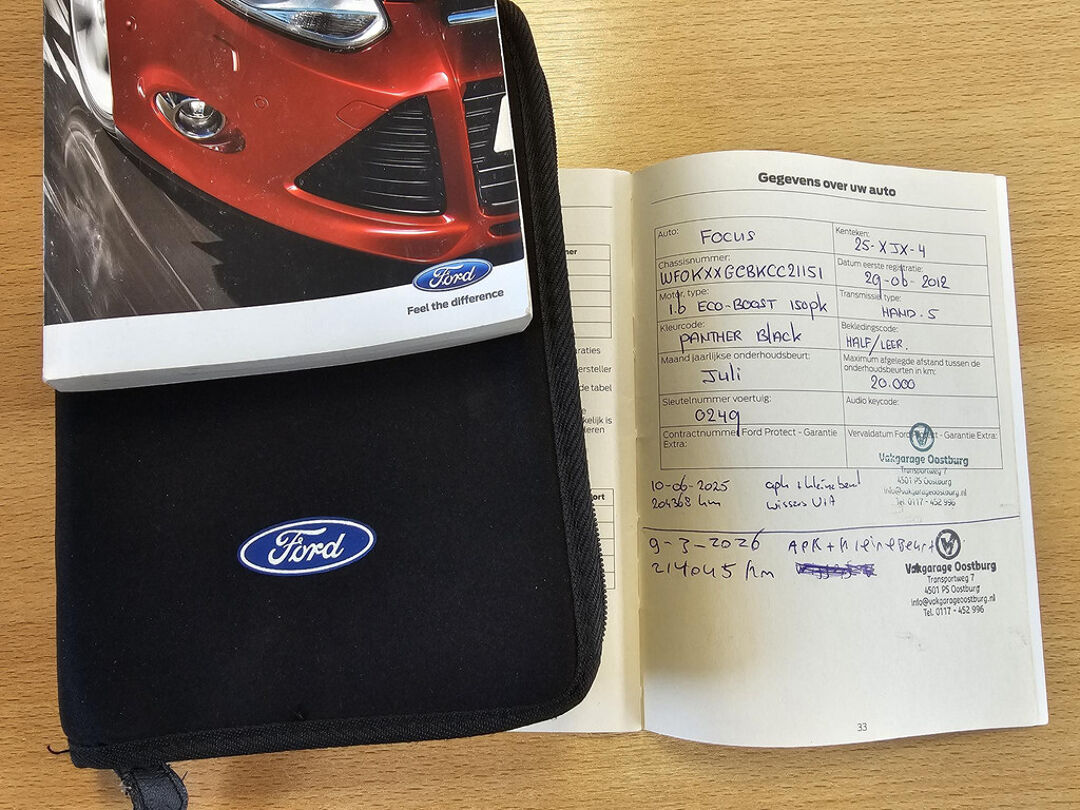 Ford
Feel the difference
Ford
Gegevens over uw auto
Auto: FOCUS
Kenteken: 25-XJX-4
Chassisnummer: WF0KXXGCBKCC21151
Datum eerste registratie: 29-06-2012
Motor, type: 1.6 ECO-BOOST 150pk
Transmissie type: HAND. 5
Kleurcode: PANTHER Black
Bekledingscode: HALF/LEER.
Maand jaarlijkse onderhoudsbeurt: Juli
Maximum afgelegde afstand tussen de
onderhoudsbeurten in km: 20.000
Sleutelnummer voertuig: 0249
Audio keycode:
Contractnummer Ford Protect - Garantie
Extra:
Vervaldatum Ford Protect - Garantie Extra:
Vakgarage Oostburg
Transportweg 7
4501 PS Oostburg
info@vakgarageoostburg.nl
Tel. 0117 - 452 996
10-06-2025 apk + kleine beurt
204368 km wissers V+A
9-3-2026 APK + Kleine Beurt
214045 km
Vakgarage Oostburg
Transportweg 7
4501 PS Oostburg
info@vakgarageoostburg.nl
Tel. 0117 - 452 996
33